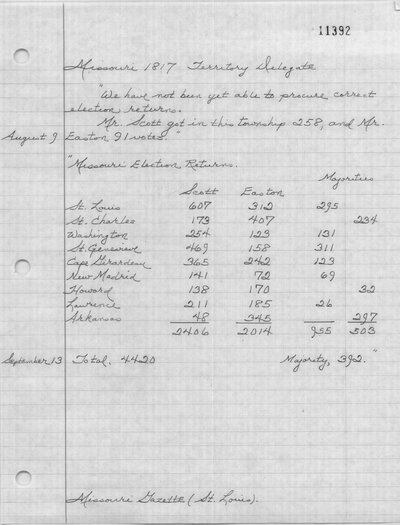 11392
Missouri 1817 Territory Delegate
"We have not been yet able to procure correct
election returns.
Mr. Scott got in this township 258, and Mr.
August 9 Easton 91 votes."
"Missouri Election Returns.
Majorities
Scott Easton
St. Louis 607 312 295
St. Charles 173 407 234
Washington 254 123 131
St. Genevieve 469 158 311
Cape Girardeau 365 242 123
New Madrid 141 72 69
Howard 138 170 32
Lawrence 211 185 26
Arkansas 48 345 297
2406 2014 955 563
September 13 Total. 4420 Majority, 392."
Missouri Gazette (St. Louis).